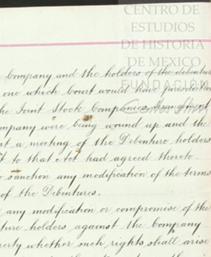 CENTRO DE
ESTUDIOS
DE HISTORIA
DE MEXICO
Company and the holders of the debentures
one which Court would have jurisdiction
the Joint Stock Companies
ompany were being wound up and the
at a meeting of the Debenture holders
to that Act had agreed thereto.
sanction any modification of the terms
of the Debentures.
any modification or compromise of the
ture holders against the Company
perty whether such rights shall arise